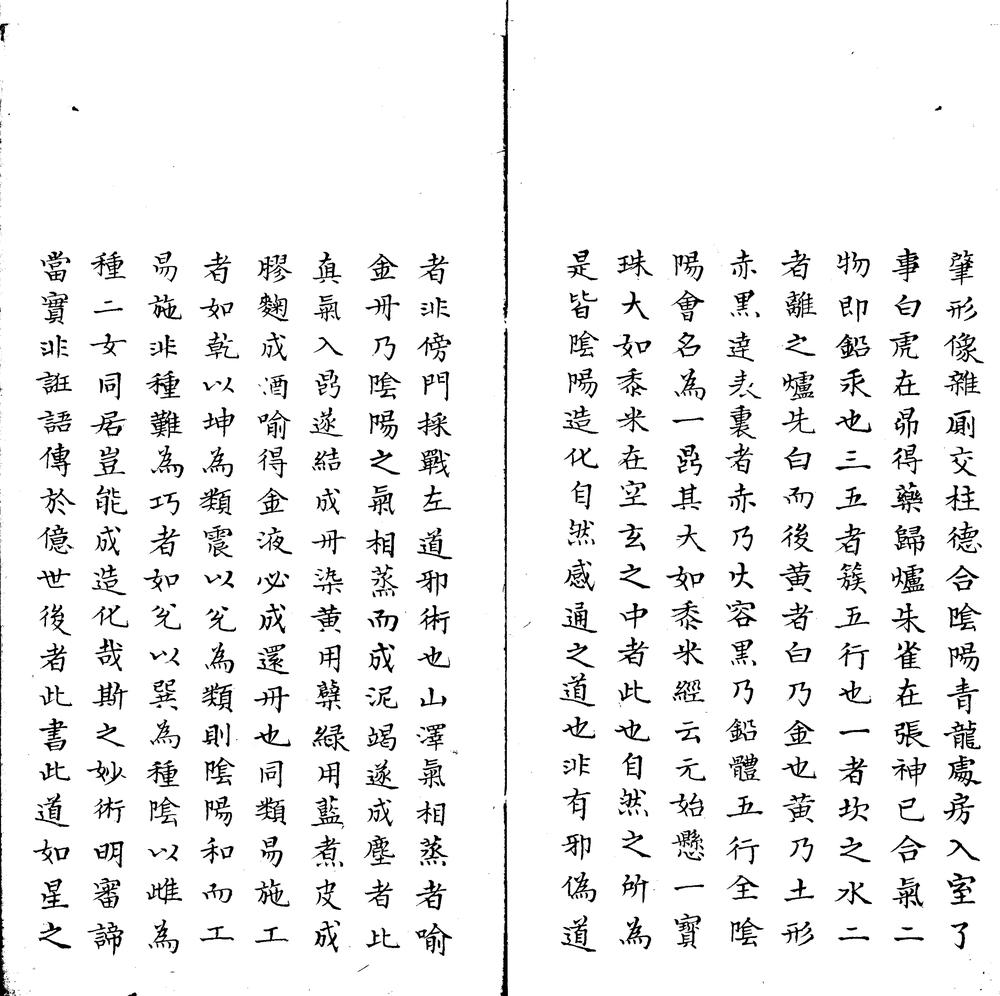 肇形像雜廁交柱德合陰陽青龍處房入室了
事白虎在昴得藥歸爐朱雀在張神已合氣二
物即鉛汞也三五者簇五行也一者坎之水二
者離之爐先白而後黃者白乃金也黃乃土形
赤黑達表裏者赤乃火容黑乃鉛體五行全陰
陽會名為一鼎其大如黍米經云元始懸一寶
珠大如黍米在空玄之中者此也自然之所為
是皆陰陽造化自然感通之道也非有邪偽道
者非傍門採戰左道邪術也山澤氣相蒸者喻
金丹乃陰陽之氣相蒸而成泥竭遂成塵者此
真氣入鼎遂結成丹染黃用蘗綠用藍煮皮成
膠麴成酒喻得金液必成還丹也同類易施工
者如乾以坤為類震以兌為類則陰陽和而工
易施非種難為巧者如兌以巽為種陰以雌為
種二女同居豈能成造化哉斯之妙術明審諦
當實非誑語傳於億世後者此書此道如星之